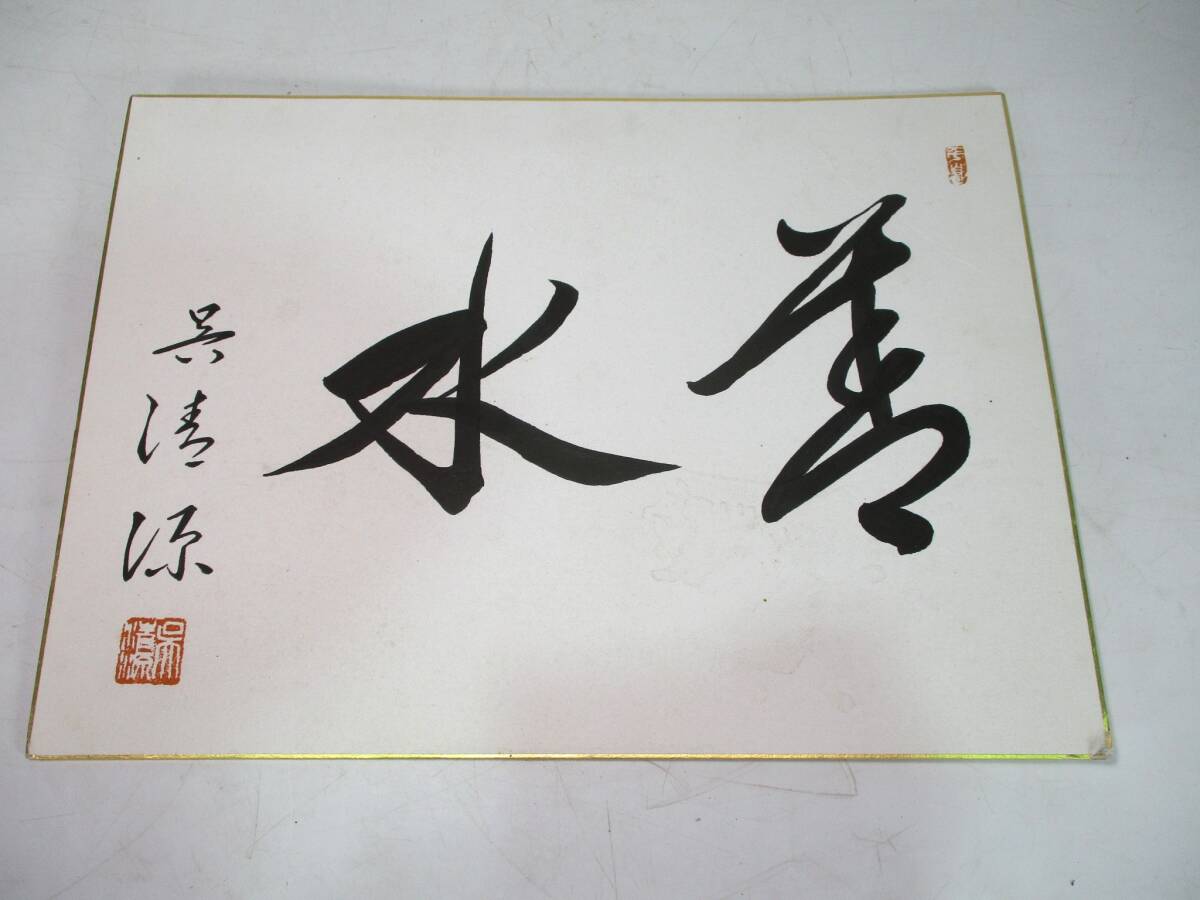 善水
呉清源